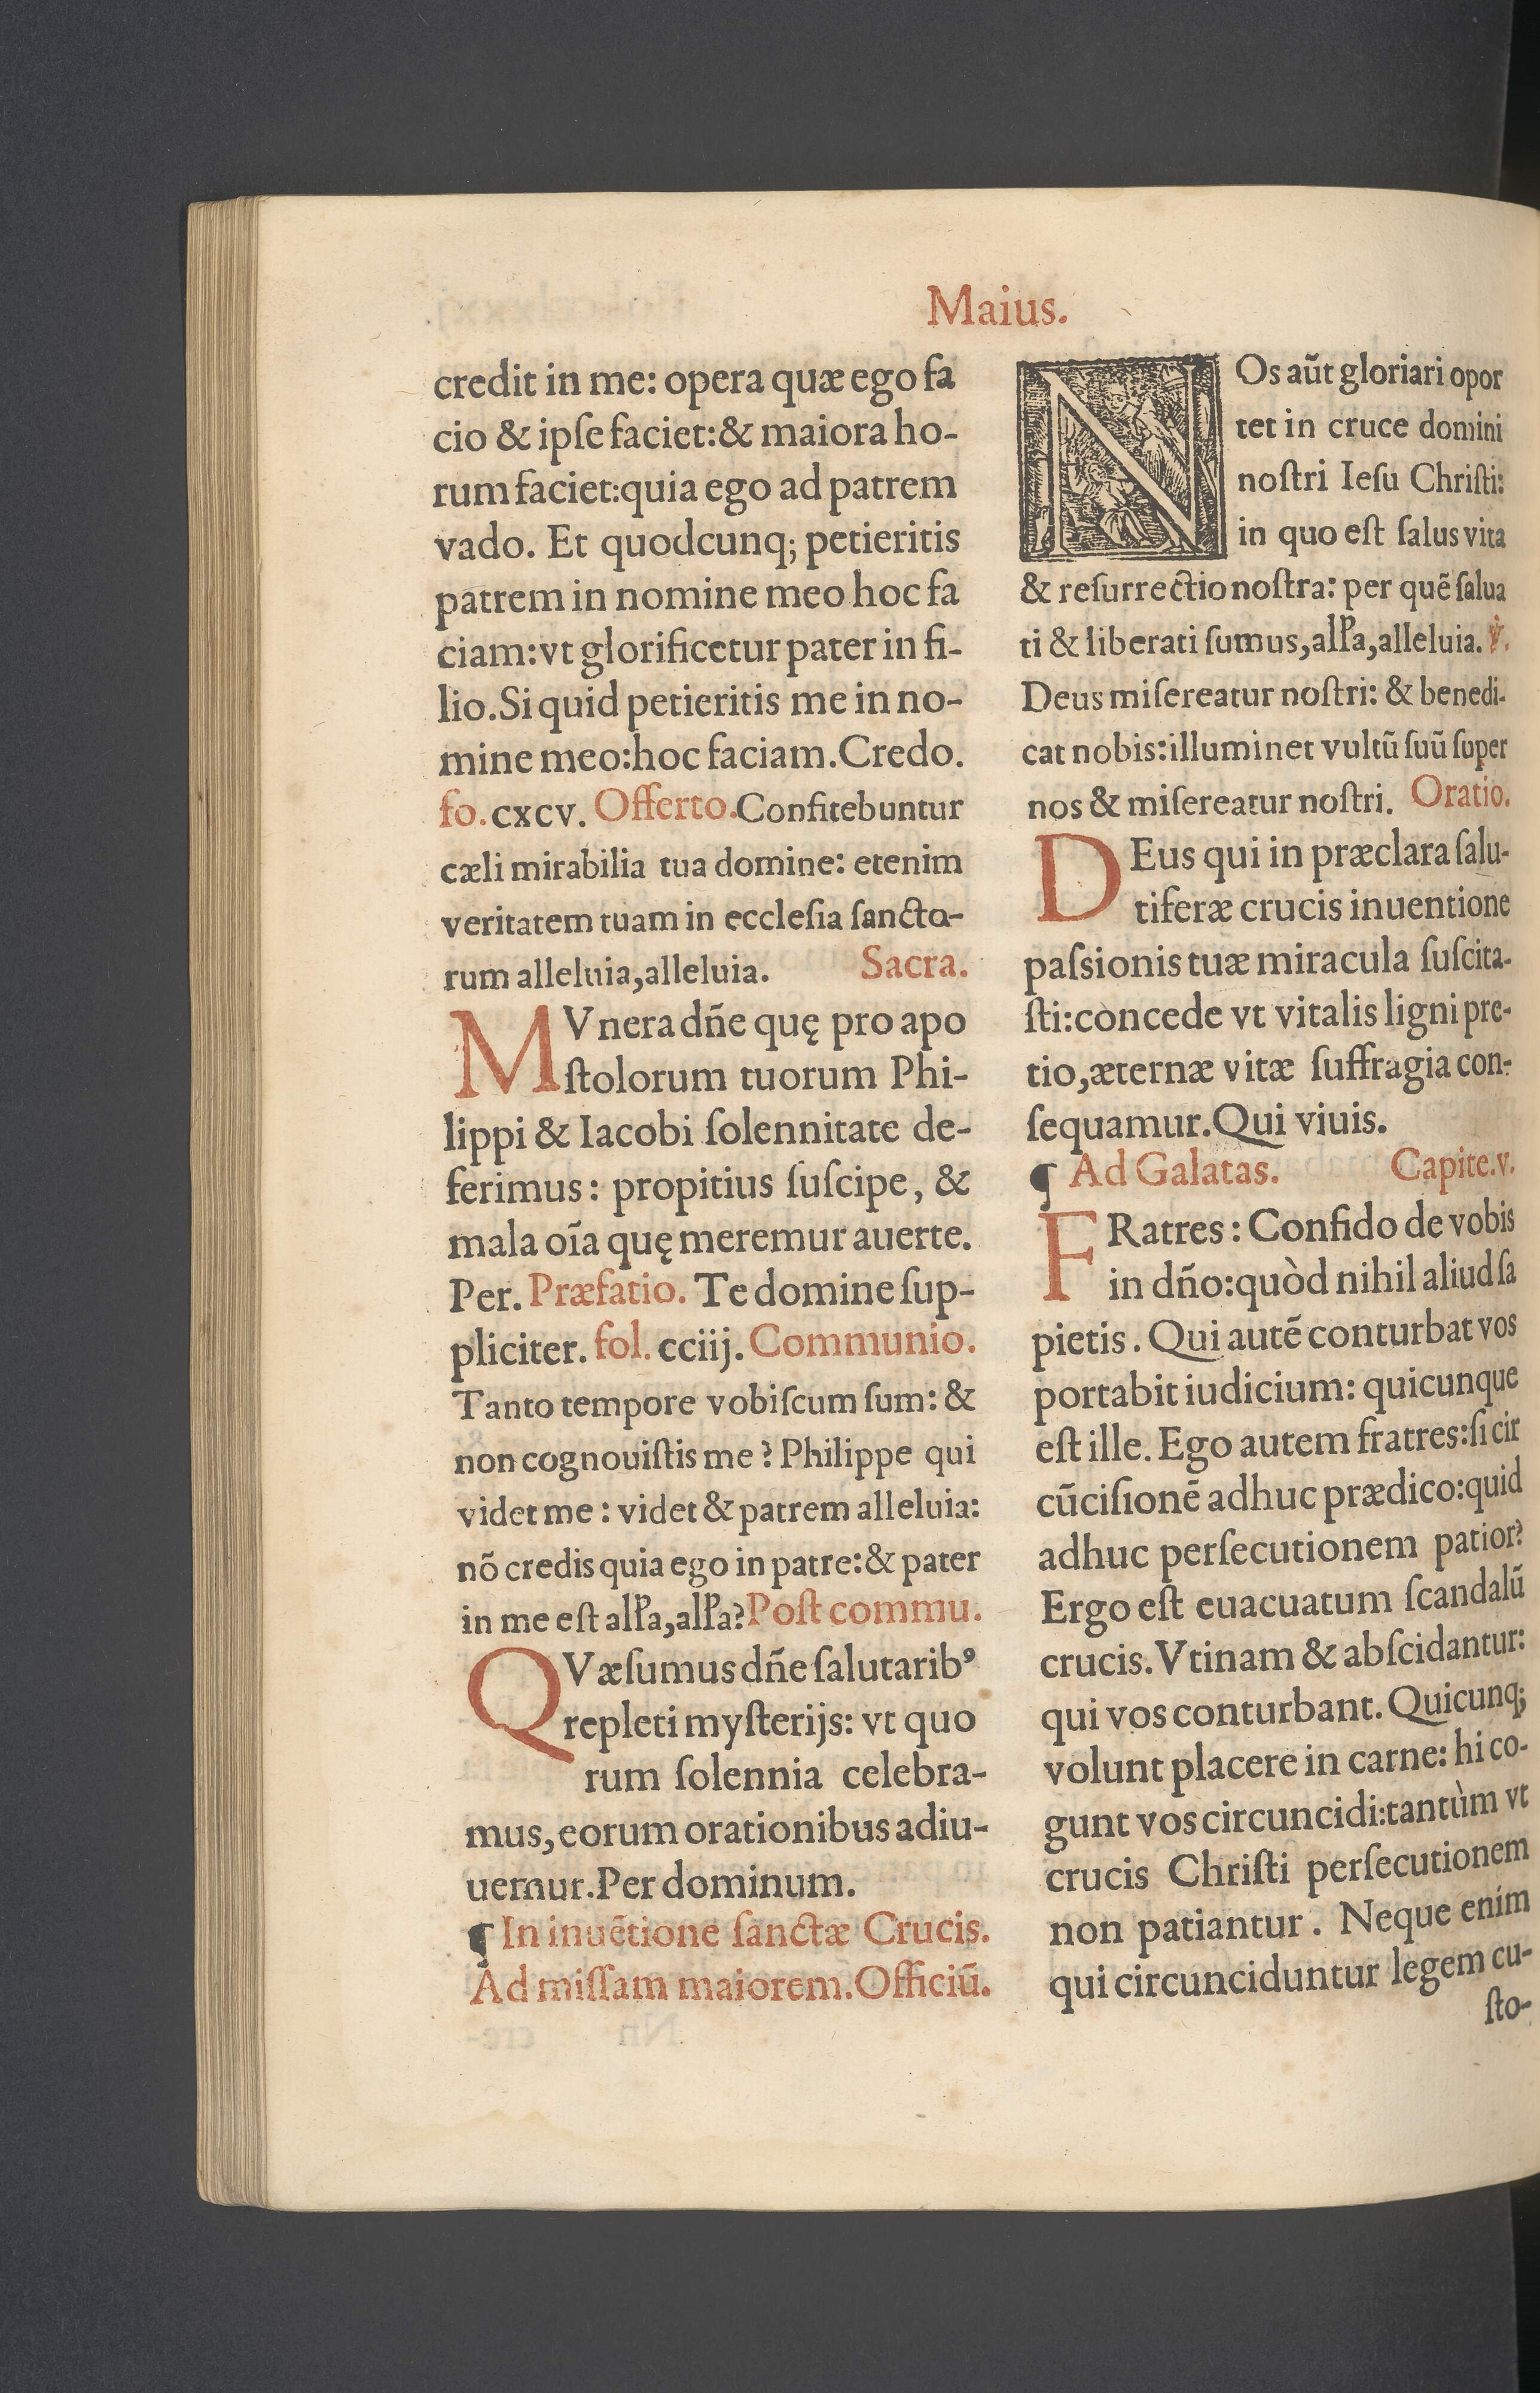 Maius.
credit in me: opera quæ ego fa
cio & ipſe faciet:& maiora ho-
rum faciet:quia ego ad patrem
vado. Et quodcunq; petieritis
patrem in nomine meo hoc fa
ciam:vt glorificetur pater in fi-
lio.Si quid petieritis me in no-
mine meo:hoc faciam.Credo.
fo.cxcv. Offerto.Confitebuntur
cæli mirabilia tua domine: etenim
veritatem tuam in eccleſia ſancto-
rum alleluia,alleluia. Sacra.
MVnera dñe quę pro apo
ſtolorum tuorum Phi-
lippi & Iacobi ſolennitate de-
ferimus: propitius ſuſcipe, &
mala oĩa quę meremur auerte.
Per. Præfatio. Te domine ſup-
pliciter. fol. cciij. Communio.
Tanto tempore vobiſcum ſum: &
non cognouiſtis me? Philippe qui
videt me: videt & patrem alleluia:
nõ credis quia ego in patre:& pater
in me eſt all'a,all'a?Poſt commu.
QVæſumus dñe ſalutarib⁹
repleti myſterijs: vt quo
rum ſolennia celebra-
mus, eorum orationibus adiu-
uemur.Per dominum.
¶ In inuẽtione ſanctæ Crucis.
Ad miſſam maiorem.Officiũ.
NOs aũt gloriari opor
tet in cruce domini
noſtri Ieſu Chriſti:
in quo eſt ſalus vita
& reſurrectio noſtra: per quẽ ſalua
ti & liberati ſumus,all'a,alleluia. ℣.
Deus miſereatur noſtri: & benedi-
cat nobis:illuminet vultũ ſuũ ſuper
nos & miſereatur noſtri. Oratio.
DEus qui in præclara ſalu-
tiferæ crucis inuentione
paſsionis tuæ miracula ſuſcita-
ſti:concede vt vitalis ligni pre-
tio,æternæ vitæ ſuffragia con-
ſequamur.Qui viuis.
¶ Ad Galatas. Capite.v.
FRatres: Confido de vobis
in dño:quòd nihil aliud ſa
pietis. Qui autẽ conturbat vos
portabit iudicium: quicunque
eſt ille. Ego autem fratres:ſi cir
cũciſionẽ adhuc prædico:quid
adhuc perſecutionem patior?
Ergo eſt euacuatum ſcandalũ
crucis. Vtinam & abſcidantur:
qui vos conturbant. Quicunq;
volunt placere in carne: hi co-
gunt vos circuncidi:tantùm vt
crucis Chriſti perſecutionem
non patiantur. Neque enim
qui circunciduntur legem cu-
ſto-